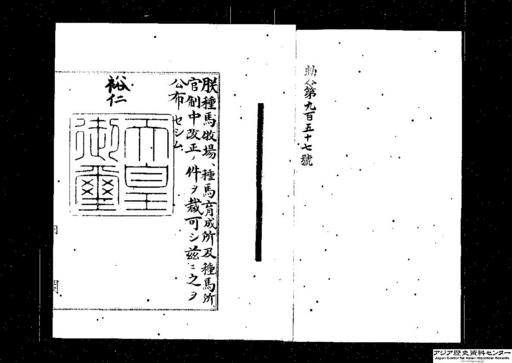 勅令第九百五十七號
朕種馬牧場、種馬育成所及種馬所
官制中改正ノ件ヲ裁可シ茲ニ之ヲ
公布セシム
裕仁
天皇
御璽
アジア歴史資料センター
Japan Center for Asian Historical Records